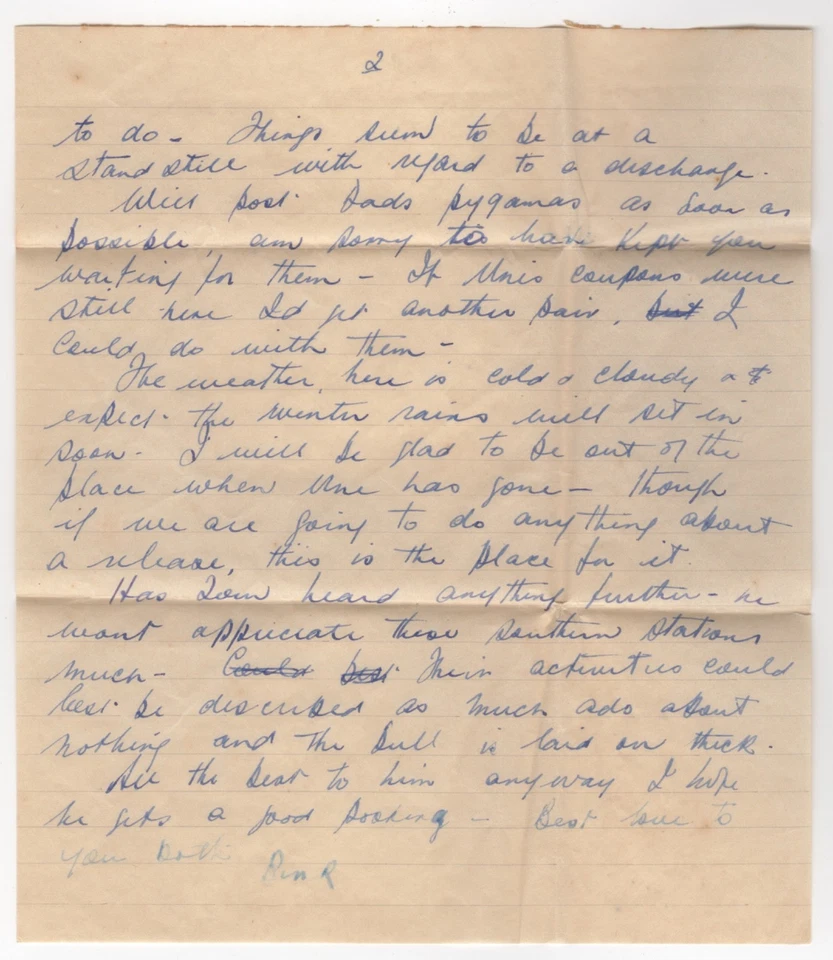 2
to do - Things seem to be at a
stand still with regard to a discharge.
Will post Dads pygamas as soon as
possible, am sorry to have kept you
waiting for them - If Unis coupons were
still here Id get another pair, but I
could do with them -
The weather here is cold & cloudy &
expect the winter rains will set in
soon - I will be glad to be out of the
place when Une has gone - though
if we are going to do anything about
a release, this is the place for it.
Has heard anything further - he
wont appreciate these southern stations
much - Could best Their activities could
best be described as much ado about
nothing and the bull is laid on thick.
All the best to him anyway I hope
he gets a good posting - Best love to
you both